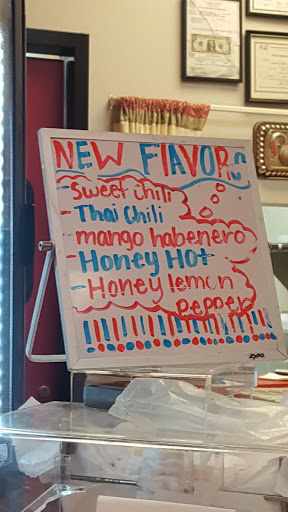 NEW FlAVORS
- Sweet chili
- Thai Chili
mango habenero
- Honey Hot
- Honey lemon
pepper
!!!!!!!!!!!!!!!!!
EXPO